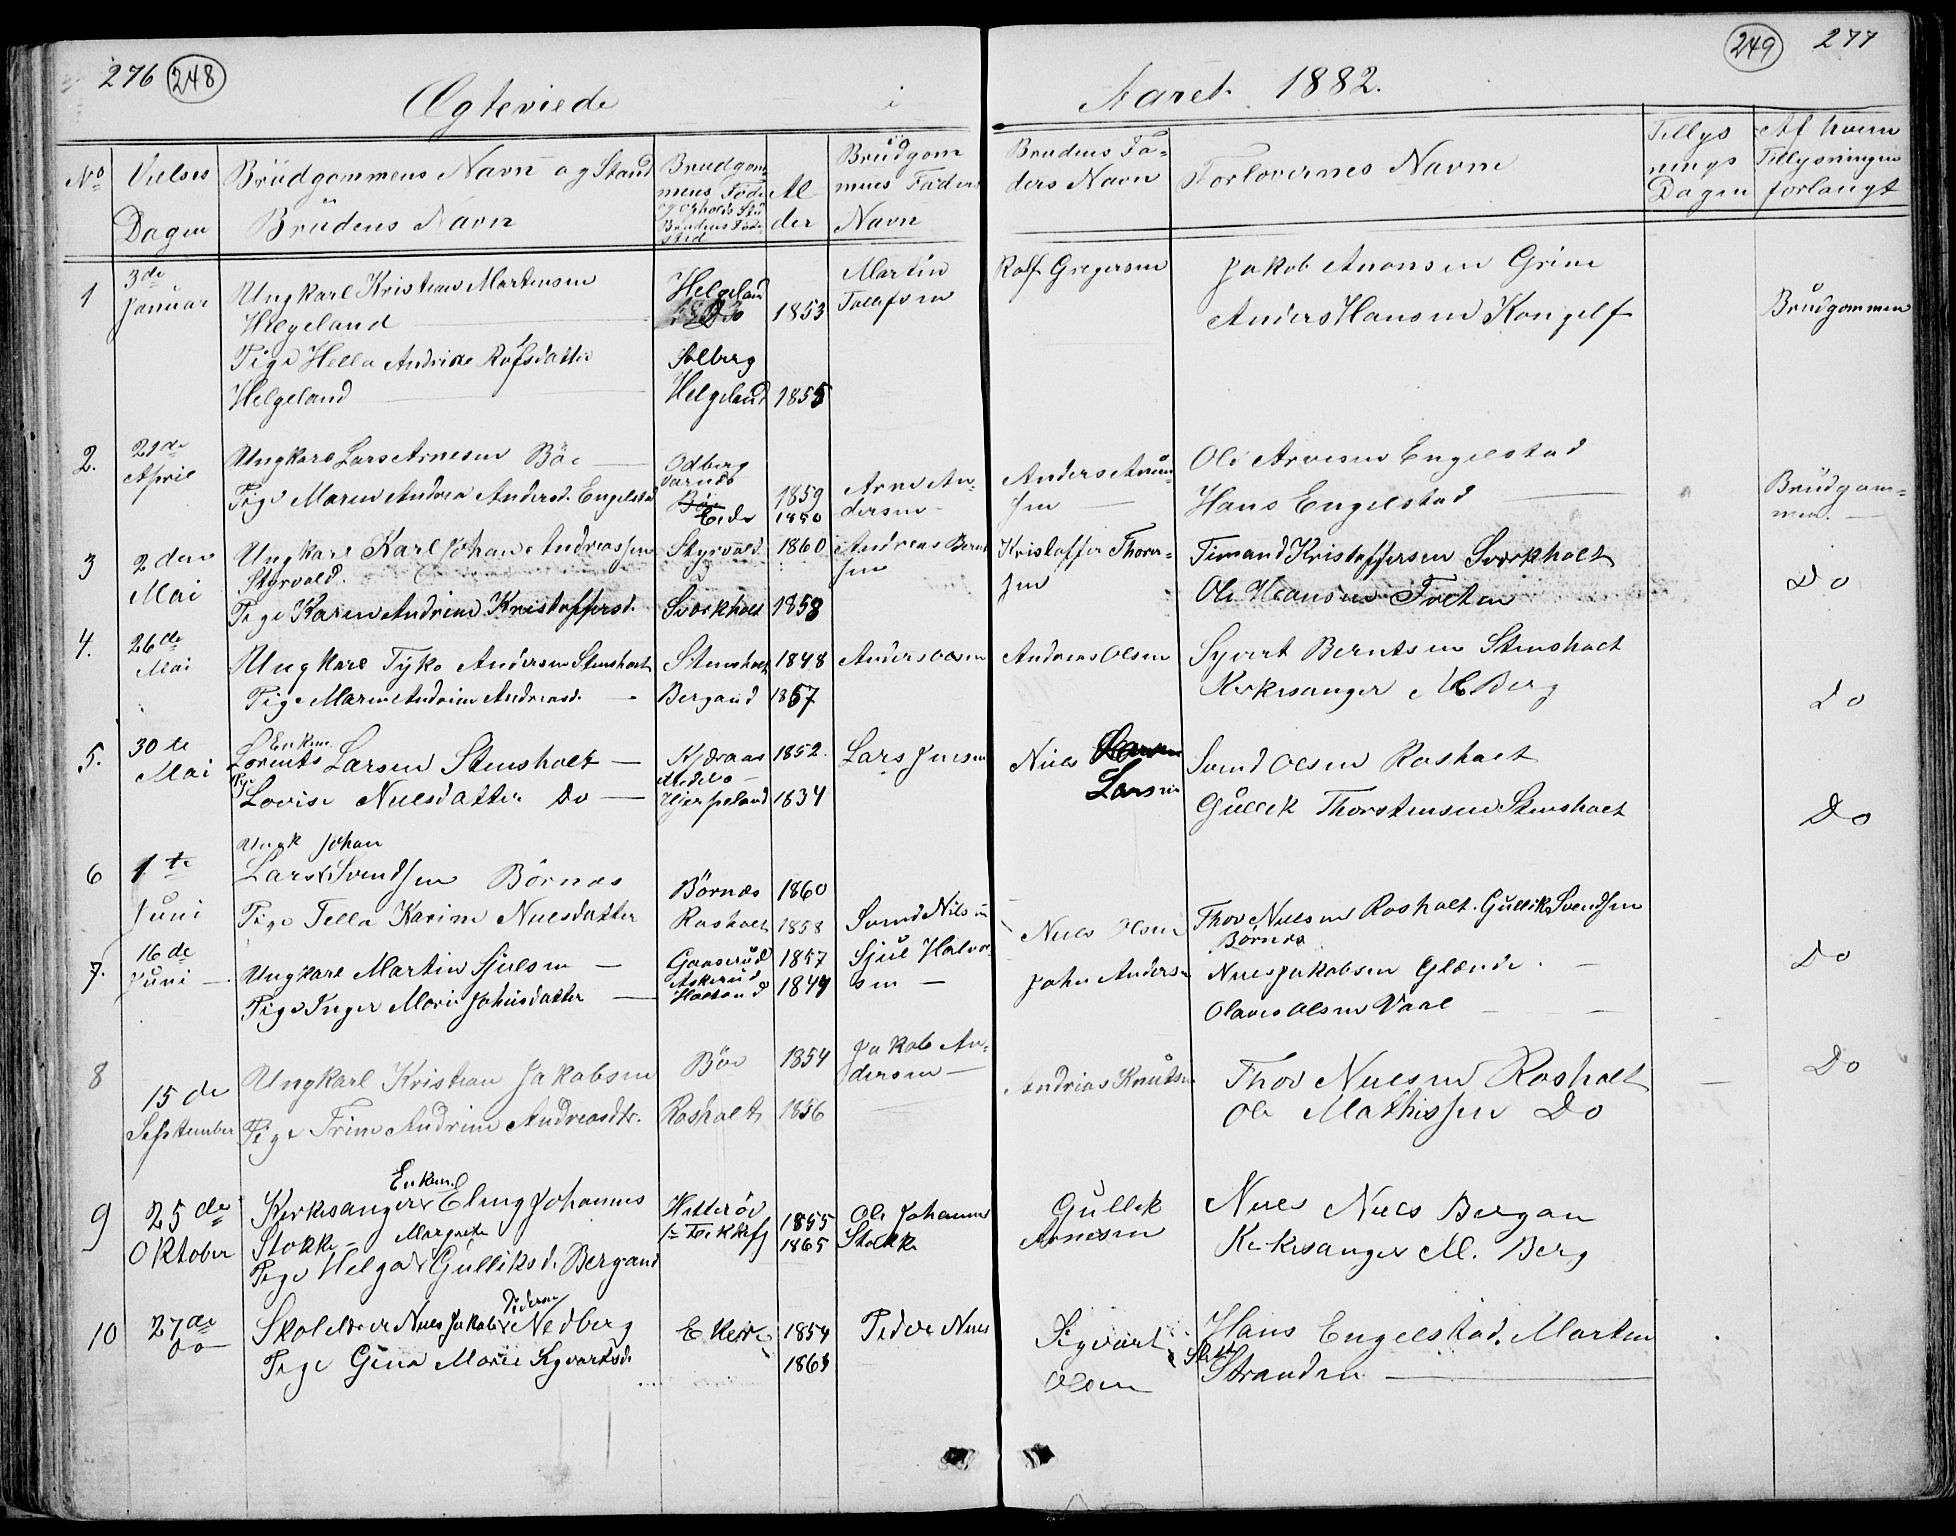 276 (248)
Ægteviede i
Aaret 1882.
(249) 277
No Vielses Dagen
Brüdgommens Navn og Stand
Brüdens Navn
Brudgommens Føde og opholds Std Brudens Fødested
Al der
Brüdgommens Faders Navn
Brudens Faders Navn
Forlovernes Navne
Tillysnings Dagen
Af hvem Tillysningen forlangt
1 3de Januar
Ungkarl Kristian Martinsen
Helgeland
Helgeland Do 1853
Martin Tollefsen
Rolf Gregersen
Jakob Anonsen Grine
Anders Hansen Kongelf
Brüdgommen
Pige Hella Andrine Rofsdatter
Helgeland
Solberg
Helgeland 1855
2. 21de April
Ungkarl Lars Arnesen Böe
Pige Maren Andrea Andersd. Engelstad
Odberg
Jarnes
Eide
1859
1850
Arne Andersen
Anders
Ole Arvesen Engelstad
Hans Engelstad
Brüdgommen.
3 2den Mai
Ungkarl Karl Johan Andreassen
Styrvold.
Pige Karen Andrine Kristoffersd.
Styrvold 1860
Sværkholt 1858
Andreas Berntsen
Kristoffer Thorersen
Timand Kristoffersen Sværkholt
Ole Hansen Foeten
Do
4. 26de Mai
Ungkarl Tyko Andersen Stensholt
Pige Maren Andrine Andreasd.
Stensholt 1848
Bergand 1857
Anders Olsen
Andreas Olsen
Syvert Berntsen Stensholt
Kirkesanger M Berg
Do
5. 30te Mai
Enkem.
Lorents Larsen Stensholt
Pige
Lovise Nielsdatter Do
Kjøraas 1852.
Hedels
Hjerpeland 1834
Lars Jensen
Niels Larsen
Svend Olsen Rosholt
Gullik Thorstensen Stensholt
Do
6 1te Juni
Ungk Johan
Lars Svendsen Börnes
Pige Tella Karine Nielsdatter
Börnes 1860
Rosholt 1858
Svend Nilsen
Niels Olsen
Thov Nielsen Rosholt. Gullik Svendsen
Börnes
Do
7. 16de Juni
Ungkarl Martin Sjulsen
Pige Inger Marie Johnsdatter
Gaaserud 1857
Askerud
Holtand 1849
Sjul Halvorsen
John Andersen
Niels Jakobsen Glænde
Olaves Olsen Vaal
Do
8 15de September
Ungkarl Kristian Jakobsen
Pige Trine Andrine Andreasdtr.
Böe 1854
Rosholt 1856
Jakob Andersen
Andreas Knutsen
Thov Nielsen Rosholt
Ole Mathissen Do
9 25de Oktober
Enkem.
Kirkesanger Eling Johannes
Stokke
Margrete
Pige Helga Gulliksd. Bergand
Hitterö 1855
1865
Ole Johannes Stokke
Gullik Arnesen
Niels Niels Bergan
Kirkesanger M. Berg
10 27de Do
Pedersen
Skolelærer Niels Jakob Nedberg
Pige Gina Marie Sigvartsd.
Eker 1854
1863
Peder Niels
Sigvart Olsen
Hans Engelstad. Marten
Stranden